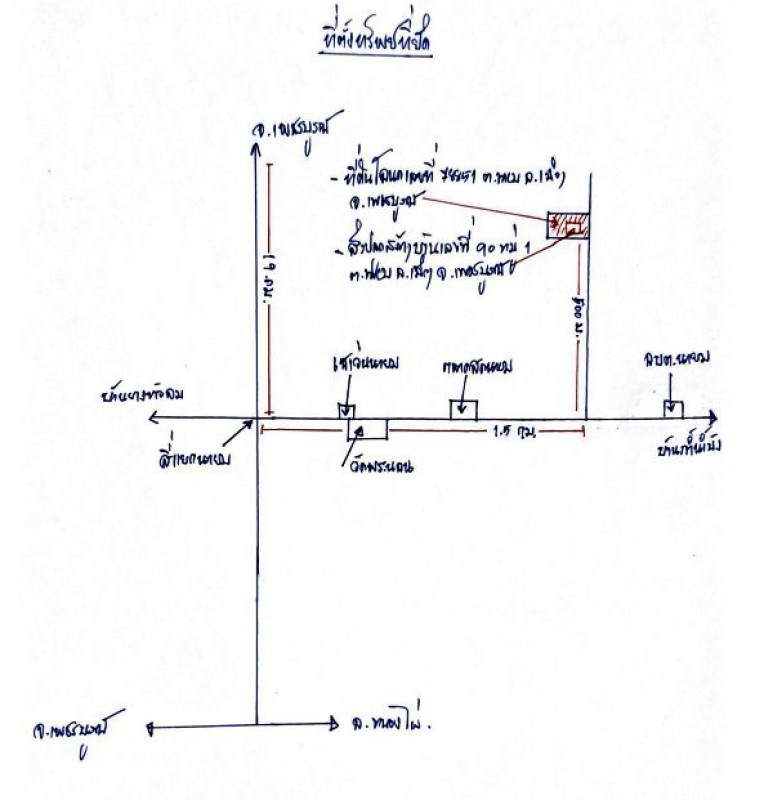 ที่ตั้งทรัพย์ที่ยึด
จ.เพชรบูรณ์
- ที่ดินโฉนดเลขที่ ต.นายม อ.เมือง
จ.เพชรบูรณ์
- สิ่งปลูกสร้างบ้านเลขที่ ๑๐ หมู่ 1
ต.นายม อ.เมือง จ.เพชรบูรณ์
19 กม.
500 ม.
ตลาดสดนายม
อบต.นายม
บ้านยางหัวลม
สี่แยกนายม
วัดพระนอน
1.5 กม.
จ.เพชรบูรณ์
อ.หนองไผ่.